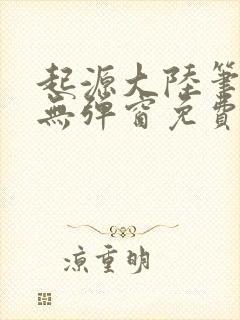 起源大陸筆
無彈窗免費
涼重明